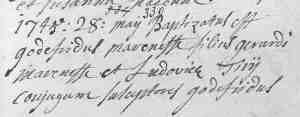 et susanna
1745: 28: may Baptizatus est
godefridus mavenesse filius gerardi
mavenesse et Ludovica
conjugum susceptores godefridus